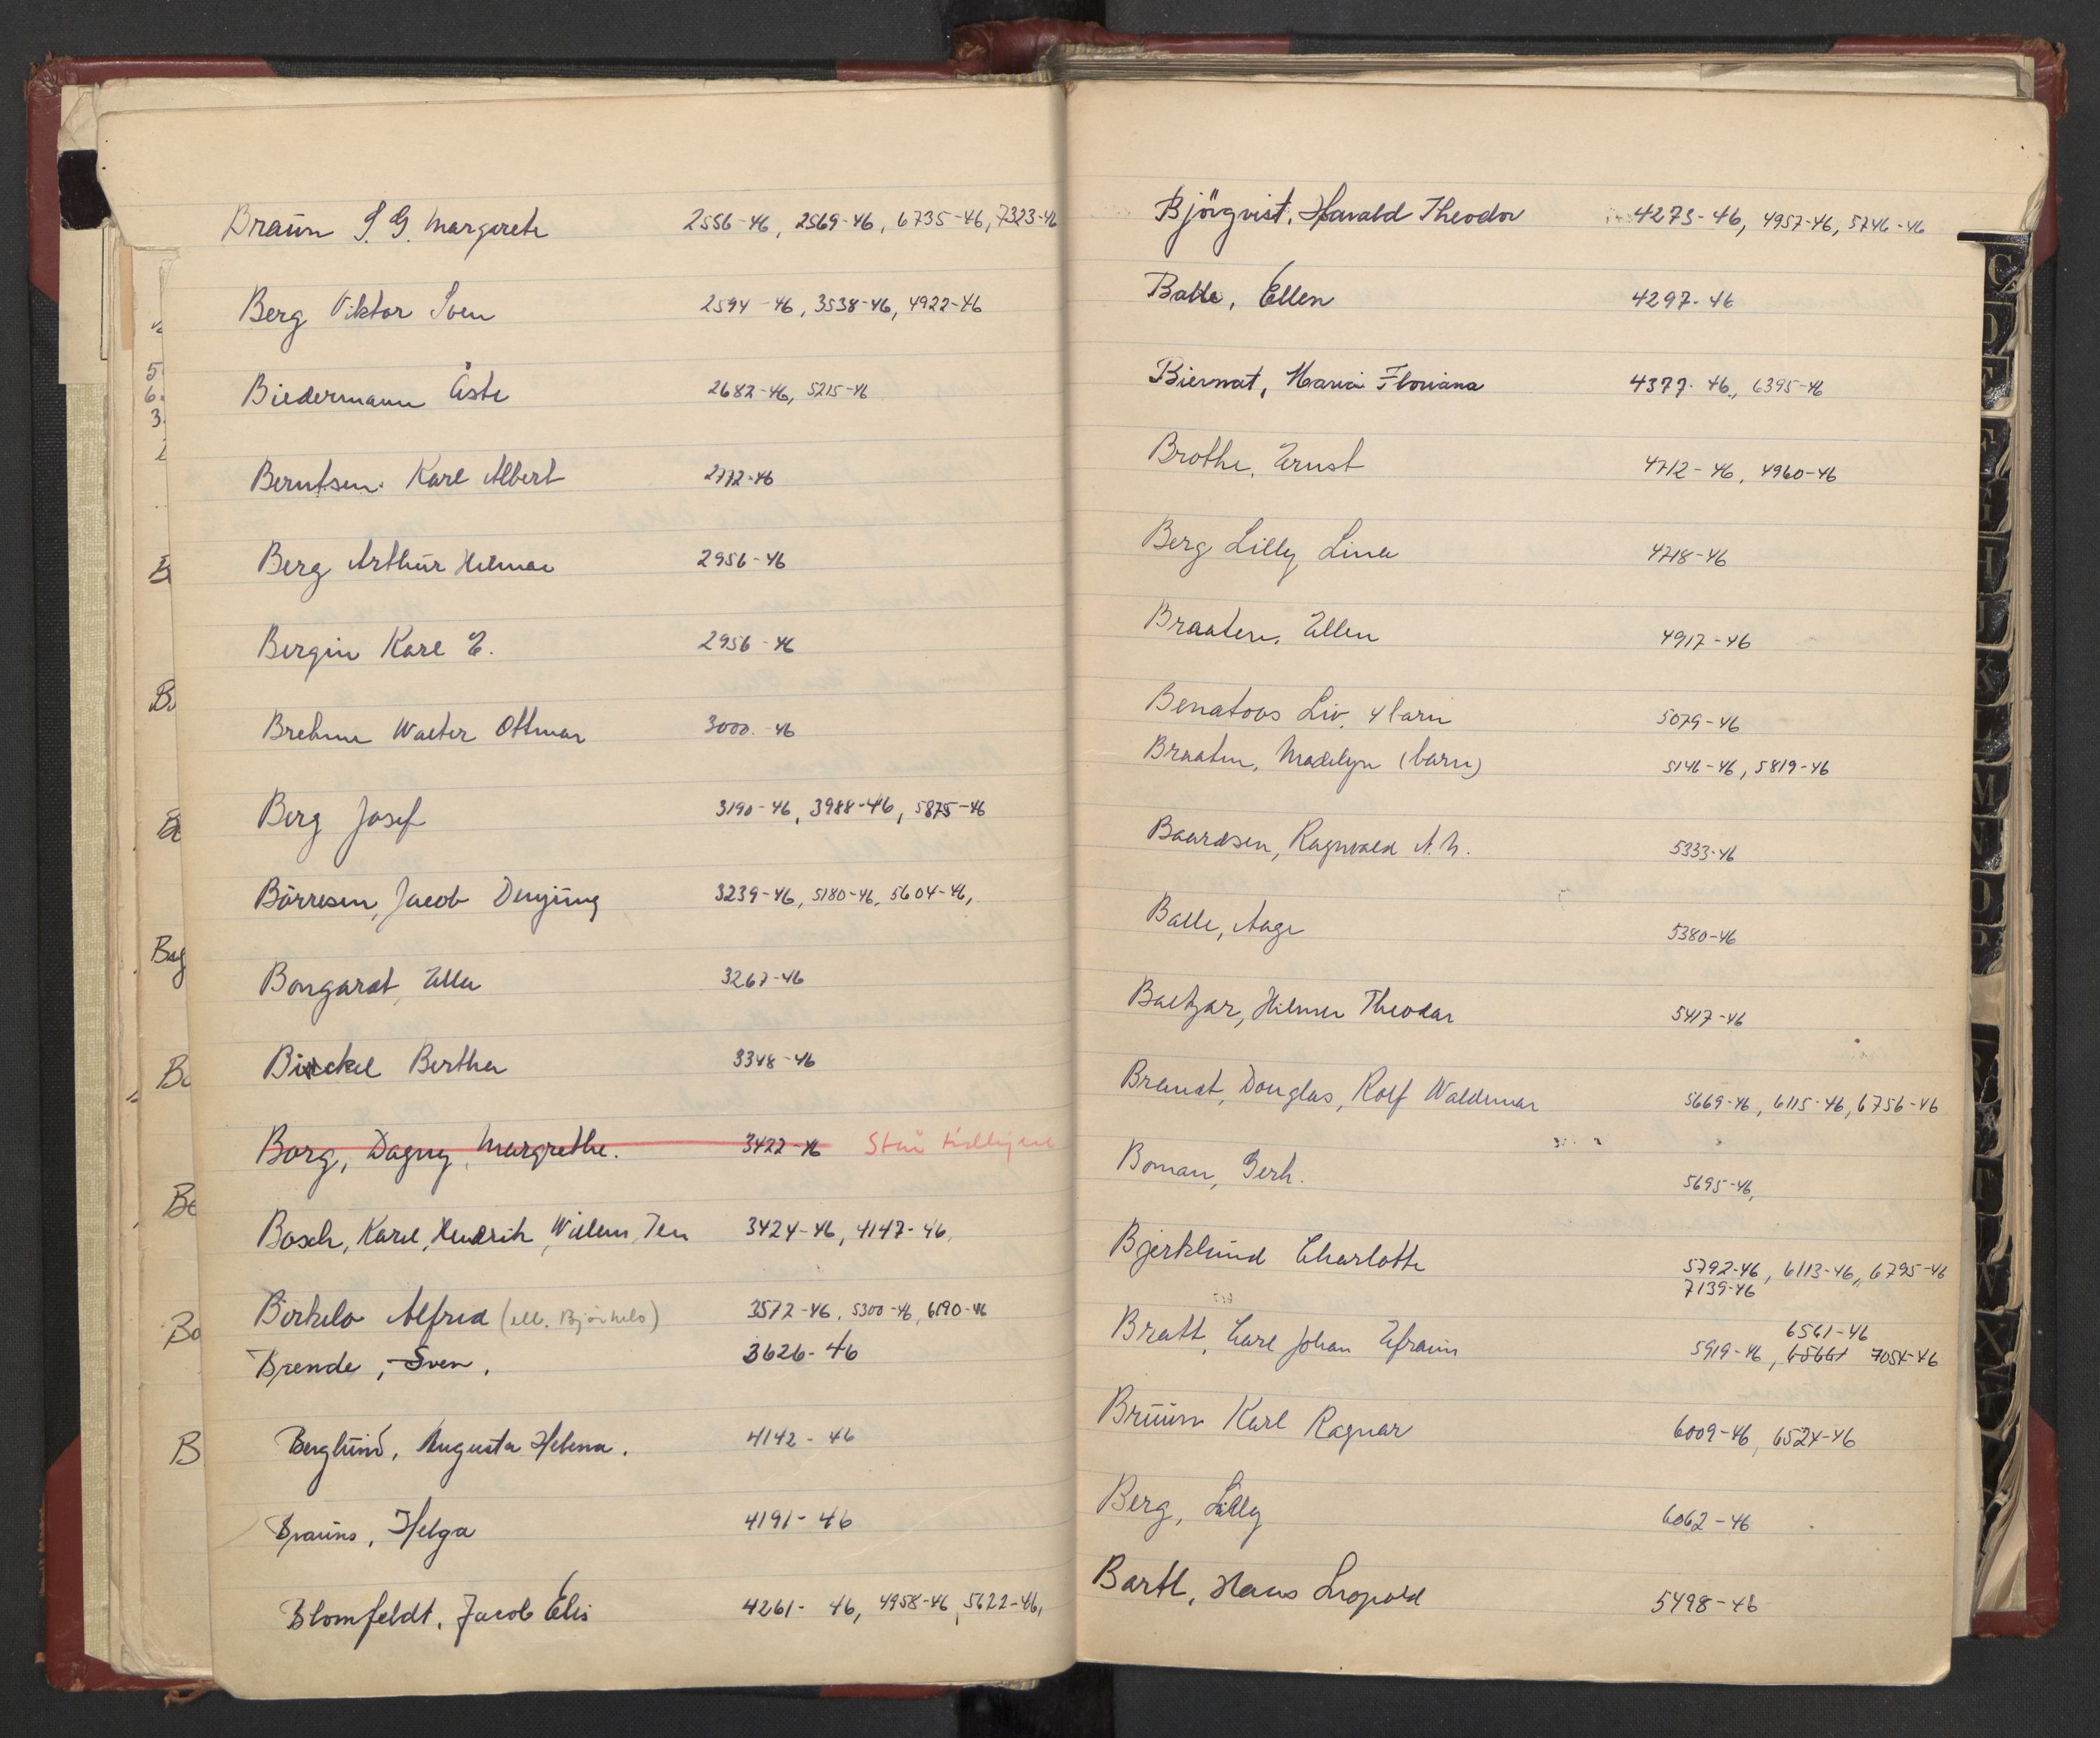 Braun S. G. Margarete 2556-46, 2569-46, 6735-46, 7323-46
Berg Viktor Sven 2594-46, 3538-46, 4922-46
Biedermann Åste 2682-46, 5215-46
Berntsen. Karl Albert 2772-46
Berg Arthur Hilmar 2956-46
Bergin Karl E. 2956-46
Brehme Walter Ottmar 3000-46
Berg Josef 3190-46, 3988-46, 5875-46
Börresen, Jacob 3239-46, 5180-46, 5604-46,
Bongardt, Ella 3267-46
Birckel Bertha 3348-46
Borg, Dagny Margrethe. 3422-46 Står
Bosch, Karel, Hendrik, Willem, Ten 3424-46, 4147-46,
Birkelo Alfred (ell. Bjørkelo) 3572-46, 5300-46, 6190-46
Brende, Sven, 3626-46
Berglund, Augusta Helena. 4142-46
Brauns, Helga 4191-46
Blomfeldt, Jacob Elis 4261-46, 4958-46, 5622-46,
Björqvist, Harald Theodor 4273-46, 4957-46, 5746-46
Balle, Ellen 4297-46
Biernat, Maria Floriana 4377-46, 6395-46
Brothe, Ernst 4712-46, 4960-46
Berg Lilly Lina 4718-46
Braaten, Ellen 4917-46
Benatoos Liv, 4 barn 5079-46
Braaten, Madelyn (barn) 5146-46, 5819-46
Baardsen, Ragnvald A. H. 5333-46
Balle, Aage 5380-46
Baltzar, Hilmer Theodor 5417-46
Brandt, Douglas, Rolf Waldemar 5669-46, 6115-46, 6756-46
Boman, Gerh. 5695-46,
Bjerklund Charlotte 5792-46, 6113-46, 6795-46
7139-46
6561-46
Bratt, Carl Johan Efraim 5919-46, 7054-46
Bruun Karl Ragnar 6009-46, 6524-46
Berg, Lilly 6062-46
Bartl, Hans Leopold 5498-46
C
M
N
O